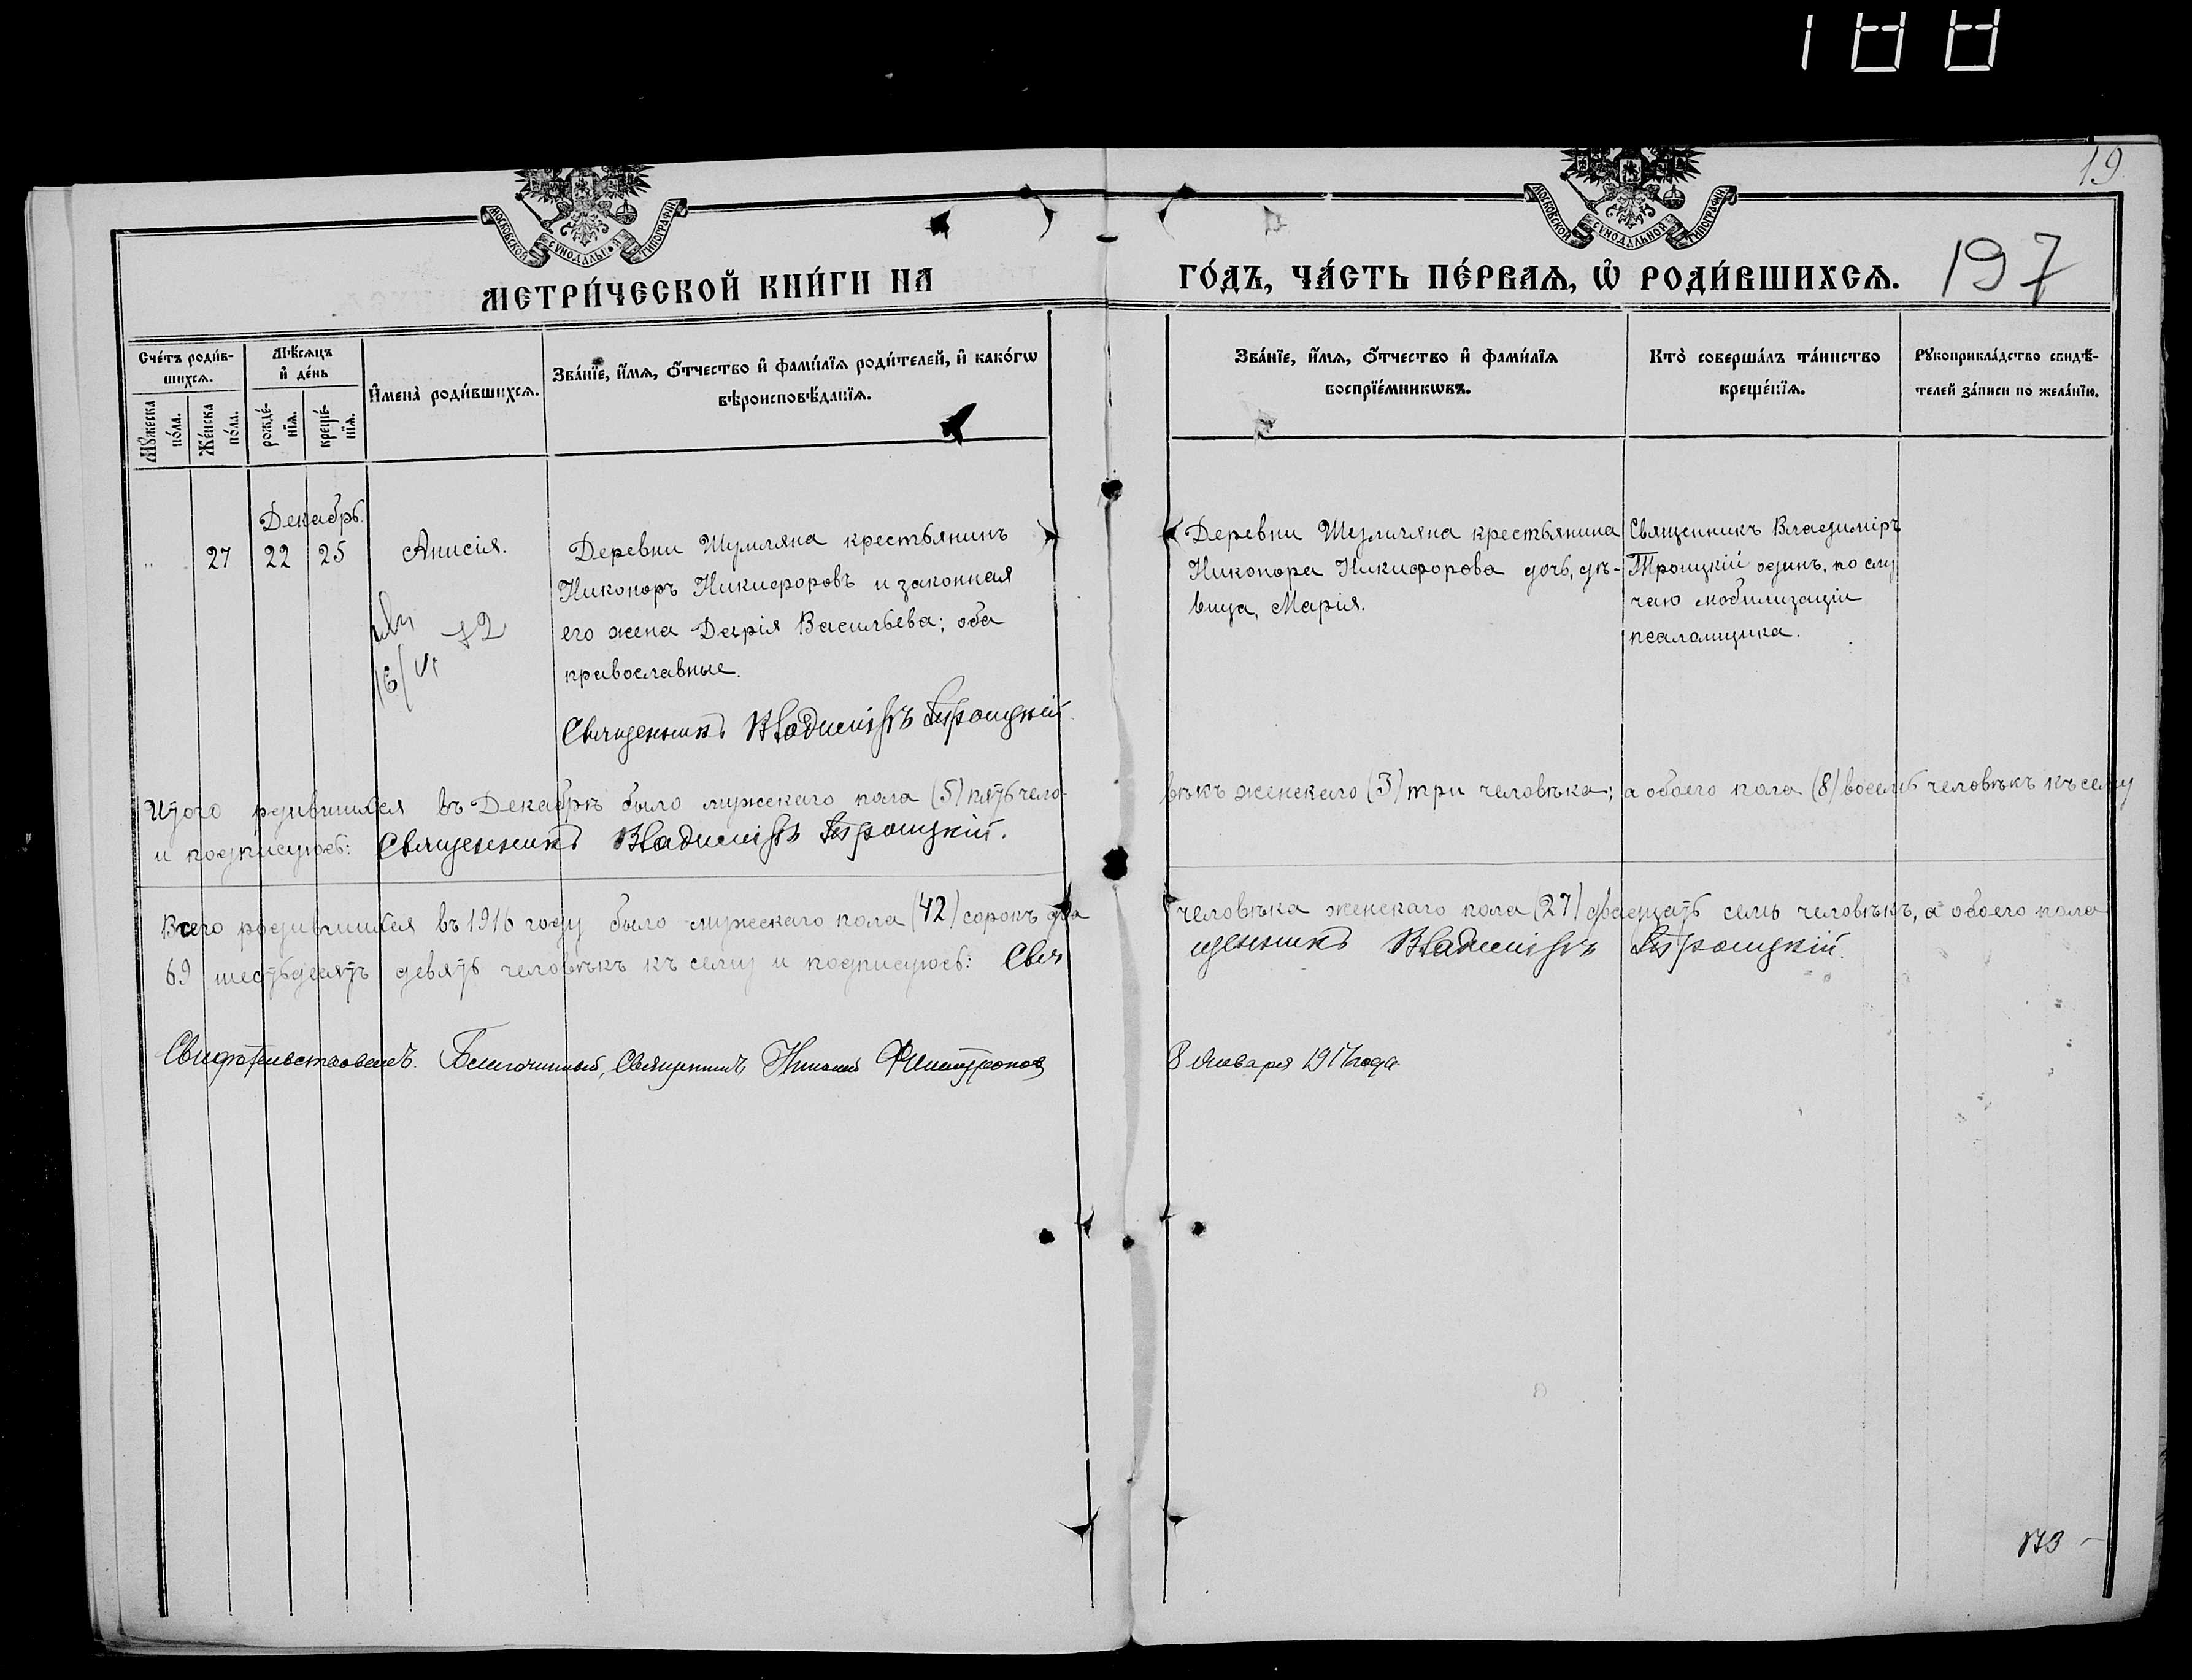 188
19
МОСКОВСКОЙ СѴНОДАЛЬНОЙ ТИПОГРАФІИ
МОСКОВСКОЙ СѴНОДАЛЬНОЙ ТИПОГРАФІИ
МЕТРИ́ЧЕСКОЙ КНИ́ГИ НА ГО́ДЪ, ЧА́СТЬ ПЕ́РВАѦ, Ѽ РОДИ́ВШИХСѦ.
197
Сче́тъ роди́в-
шихсѧ.
Мѣ́сѧцъ
и҆ де́нь
И҆мена̀ роди́вшихсѧ.
Зва́нїе, и҆́мѧ, ѻ҆́тчество и҆ фами́лїѧ роди́телей, и҆ како́гѡ
вѣроисповѣ́данїѧ.
Зва́нїе, и҆́мѧ, ѻ҆́тчество и҆ фами́лїѧ
воспрїе́мникѡвъ.
Кто̀ соверша́лъ та́инство
креще́нїѧ.
Рꙋкоприкла́дство свидѣ́-
телей за́писи по жела́нїю.
Мꙋ́жеска
по́ла.
Же́нска
по́ла.
рожде́-
нїѧ.
креще́-
нїѧ.
Декабрь.
27 22 25 Анисія.
Деревни Шумиляна крестьянинъ
Никоноръ Никифоровъ и законная
его жена Дарія Васильева; оба
православные.
Священникъ Владиміръ Троицкій.
Деревни Шумиляна крестьянина
Никонора Никифорова дочь, дѣ-
вица, Марія.
Священникъ Владиміръ
Троицкій одинъ, по слу
чаю мобилизаціи
псаломщика.
16/VI 72
Итого родившихся въ Декабрѣ было мужескаго пола (5) пять чело-
вѣкъ женскаго (3) три человѣка; а обоего пола (8) восемь человѣкъ къ сему
и подписуюсь: Священникъ Владиміръ Троицкій.
Всего родившихся въ 1916 году было мужескаго пола (42) сорокъ два
человѣка женскаго пола (27) двадцать семь человѣкъ, а обоего пола
69 шестьдесятъ девять человѣкъ къ сему и подписуюсь: Свя
щенникъ Владиміръ Троицкій.
Свидѣтельствовалъ. Благочинный, Священникъ
8 Января 1917 года.